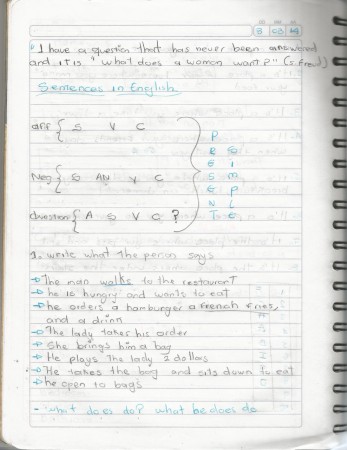 "I have a question that has never been answered
and it is "what does a woman want?" (S. Freud)
Sentences in English
aff { S V C
Neg { S AN V C
Question { A S V C ?
PRESENT
SIMPLE
1. write what the person says
The man walks to the restaurant
he is hungry and wants to eat
he orders a hamburger a french fries,
and a drinn
The lady takes his order
She brings him a bag
He plays The lady 2 dollars
He takes the bag and sits down to eat
he open to bags
- what does do? what he does do